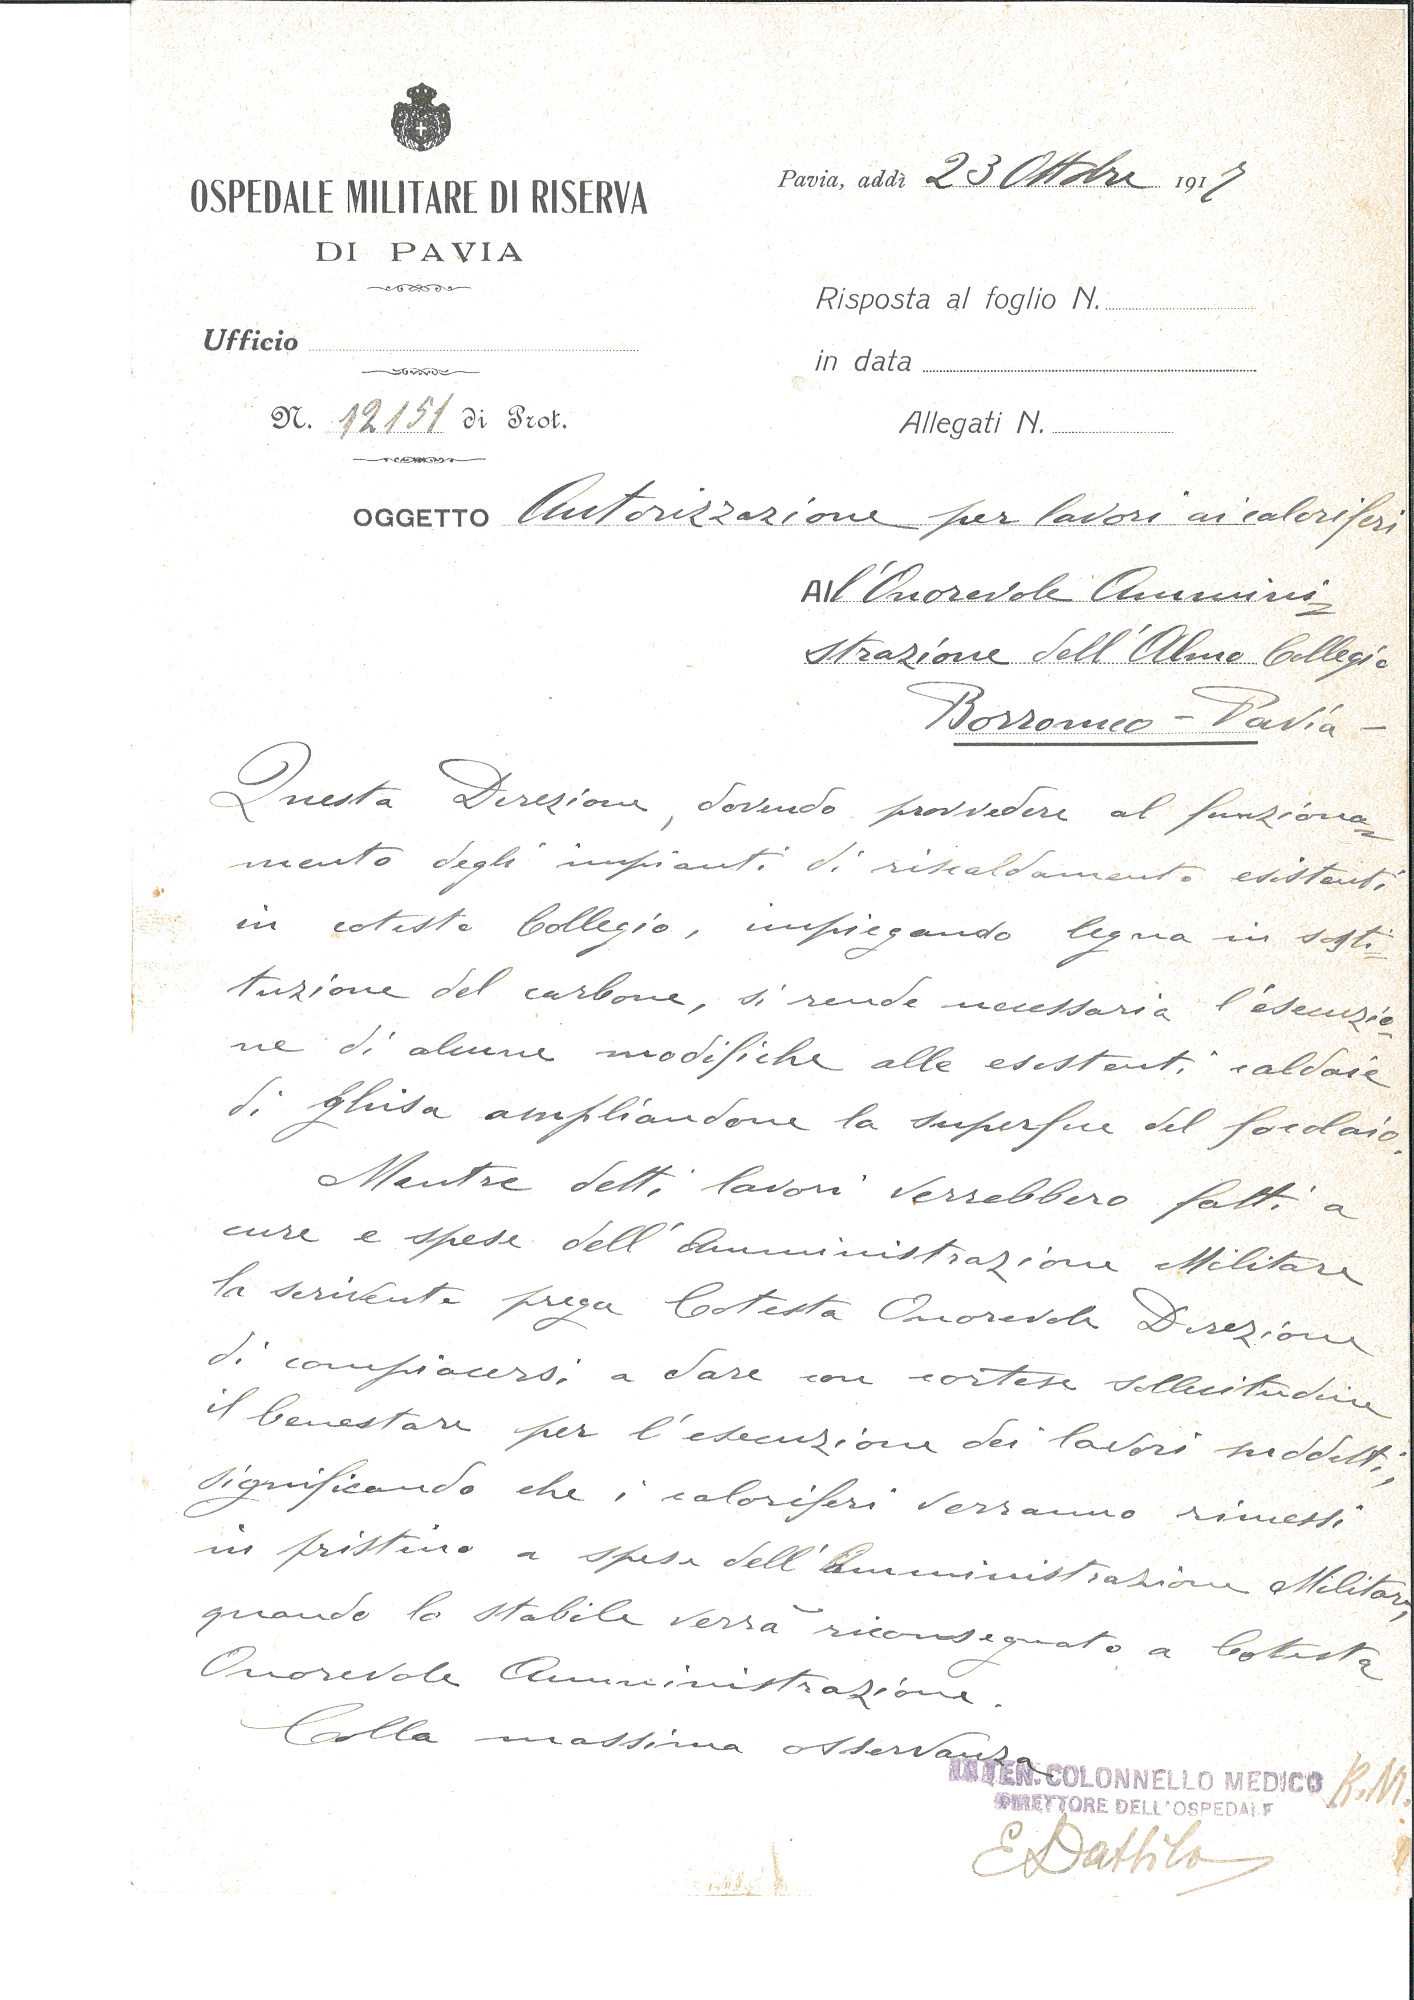 OSPEDALE MILITARE DI RISERVA
DI PAVIA
Ufficio
N. 12151 di Prot.
Pavia, addì 23 Ottobre 1917
Risposta al foglio N.
in data
Allegati N.
OGGETTO Autorizzazione per lavori ai caloriferi
All'Onorevole Ammini=
strazione dell'Almo Collegio
Borromeo - Pavia -
Questa Direzione, dovendo provvedere al funziona=
mento degli impianti di riscaldamento esistenti
in cotesto Collegio, impiegando legna in sosti=
tuzione del carbone, si rende necessaria l'esecuzio=
ne di alcune modifiche alle esistenti caldaie
di ghisa ampliandone la superfice del focolaio.
Mentre detti lavori verrebbero fatti a
cure e spese dell'Amministrazione Militare
la scrivente prega Cotesta Onorevole Direzione
di compiacersi a dare con cortese sollecitudine
il benestare per l'esecuzione dei lavori suddetti,
significando che i caloriferi verranno rimessi
in pristino a spese dell'Amministrazione Militare,
quando lo stabile verrà riconsegnato a Cotesta
Onorevole Amministrazione.
Colla massima osservanza
IL TEN. COLONNELLO MEDICO R.M.
DIRETTORE DELL'OSPEDALE
E Dattilo